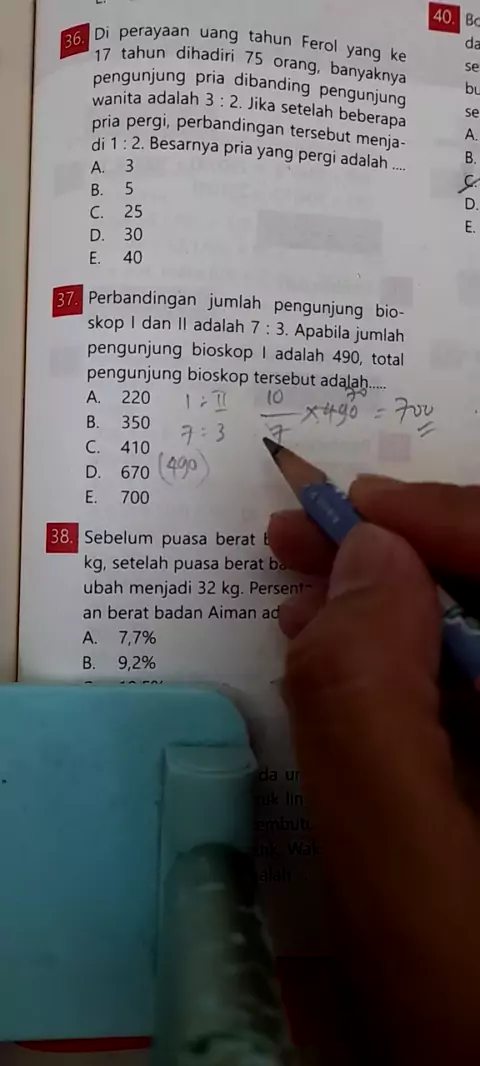 36. Di perayaan uang tahun Ferol yang ke
17 tahun dihadiri 75 orang, banyaknya
pengunjung pria dibanding pengunjung
wanita adalah 3 : 2. Jika setelah beberapa
pria pergi, perbandingan tersebut menja-
di 1 : 2. Besarnya pria yang pergi adalah ....
A. 3
B. 5
C. 25
D. 30
E. 40
37. Perbandingan jumlah pengunjung bio-
skop I dan II adalah 7 : 3. Apabila jumlah
pengunjung bioskop I adalah 490, total
pengunjung bioskop tersebut adalah.....
A. 220
B. 350
C. 410
D. 670
E. 700
I : II
7 : 3
(490)
10
70
7 × 490 = 700
38. Sebelum puasa berat
kg, setelah puasa berat
ubah menjadi 32 kg.
an berat badan Aiman
A. 7,7%
B. 9,2%
40.
A.
B.
C.
D.
E.